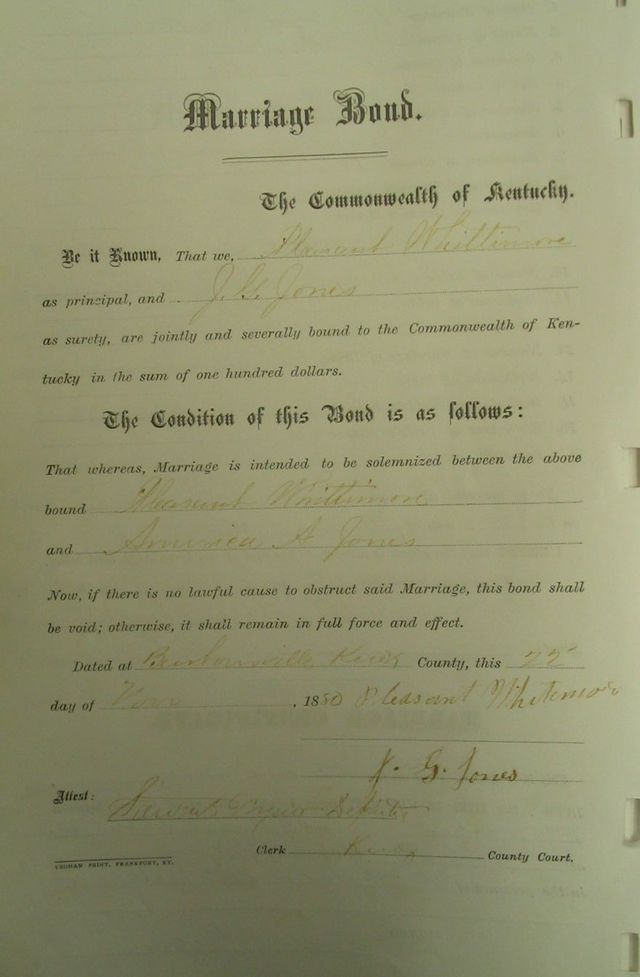 Marriage Bond.
The Commonwealth of Kentucky.
Be it Known, That we, Pleasent Whittimore
as principal, and J. G. Jones
as surety, are jointly and severally bound to the Commonwealth of Ken-
tucky in the sum of one hundred dollars.
The Condition of this Bond is as follows:
That whereas, Marriage is intended to be solemnized between the above
bound Pleasent Whittimore
and America A Jones
Now, if there is no lawful cause to obstruct said Marriage, this bond shall
be void; otherwise, it shall remain in full force and effect.
Dated at Barbourville Knox County, this 22
day of Nov , 1880 Pleasant Whitemore
J. G. Jones
Attest:
Clerk Knox County Court.
YEOMAN PRINT, FRANKFORT, KY.